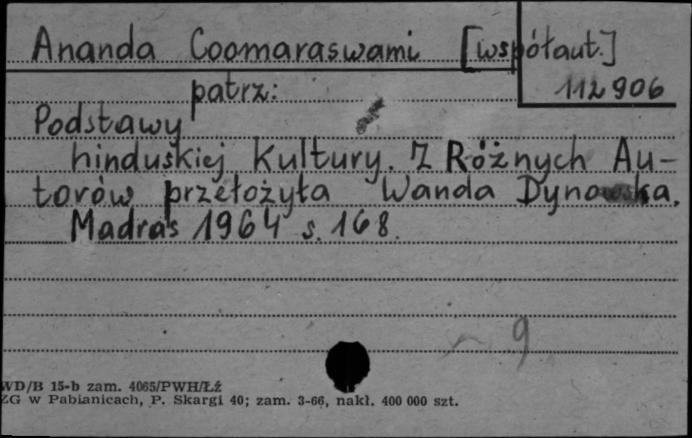 Ananda Coomaraswami [współaut.]
112906
patrz:
Podstawy
hinduskiej Kultury. Z Różnych Au-
torów przełożyła Wanda Dynowska.
Madras 1964 s. 168.
9
WD/B 15-b zam. 4065/PWH/Łź
ZG w Pabianicach, P. Skargi 40; zam. 3-66, nakł. 400 000 szt.